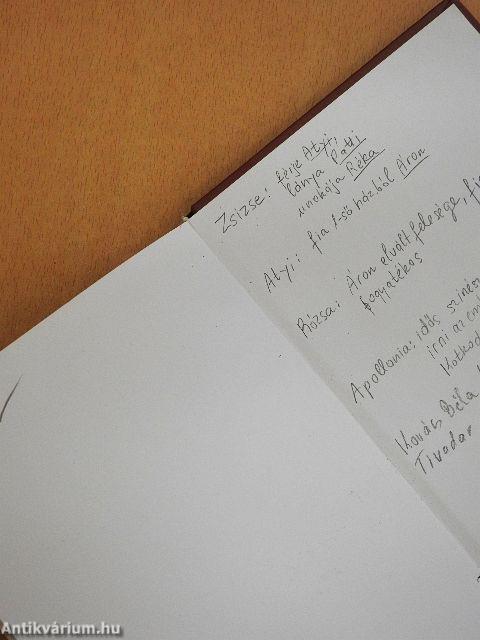 Zsizse: férje Atyi,
lánya Patti
unokája Réka
Atyi: fia 1-ső házból Áron
Rózsa: Áron elvált felesége, fia
fogyatékos
Apollonia: idős színész
írni az eml
Kotkod
Kovács Béla
Tivadar
Antikvárium.hu